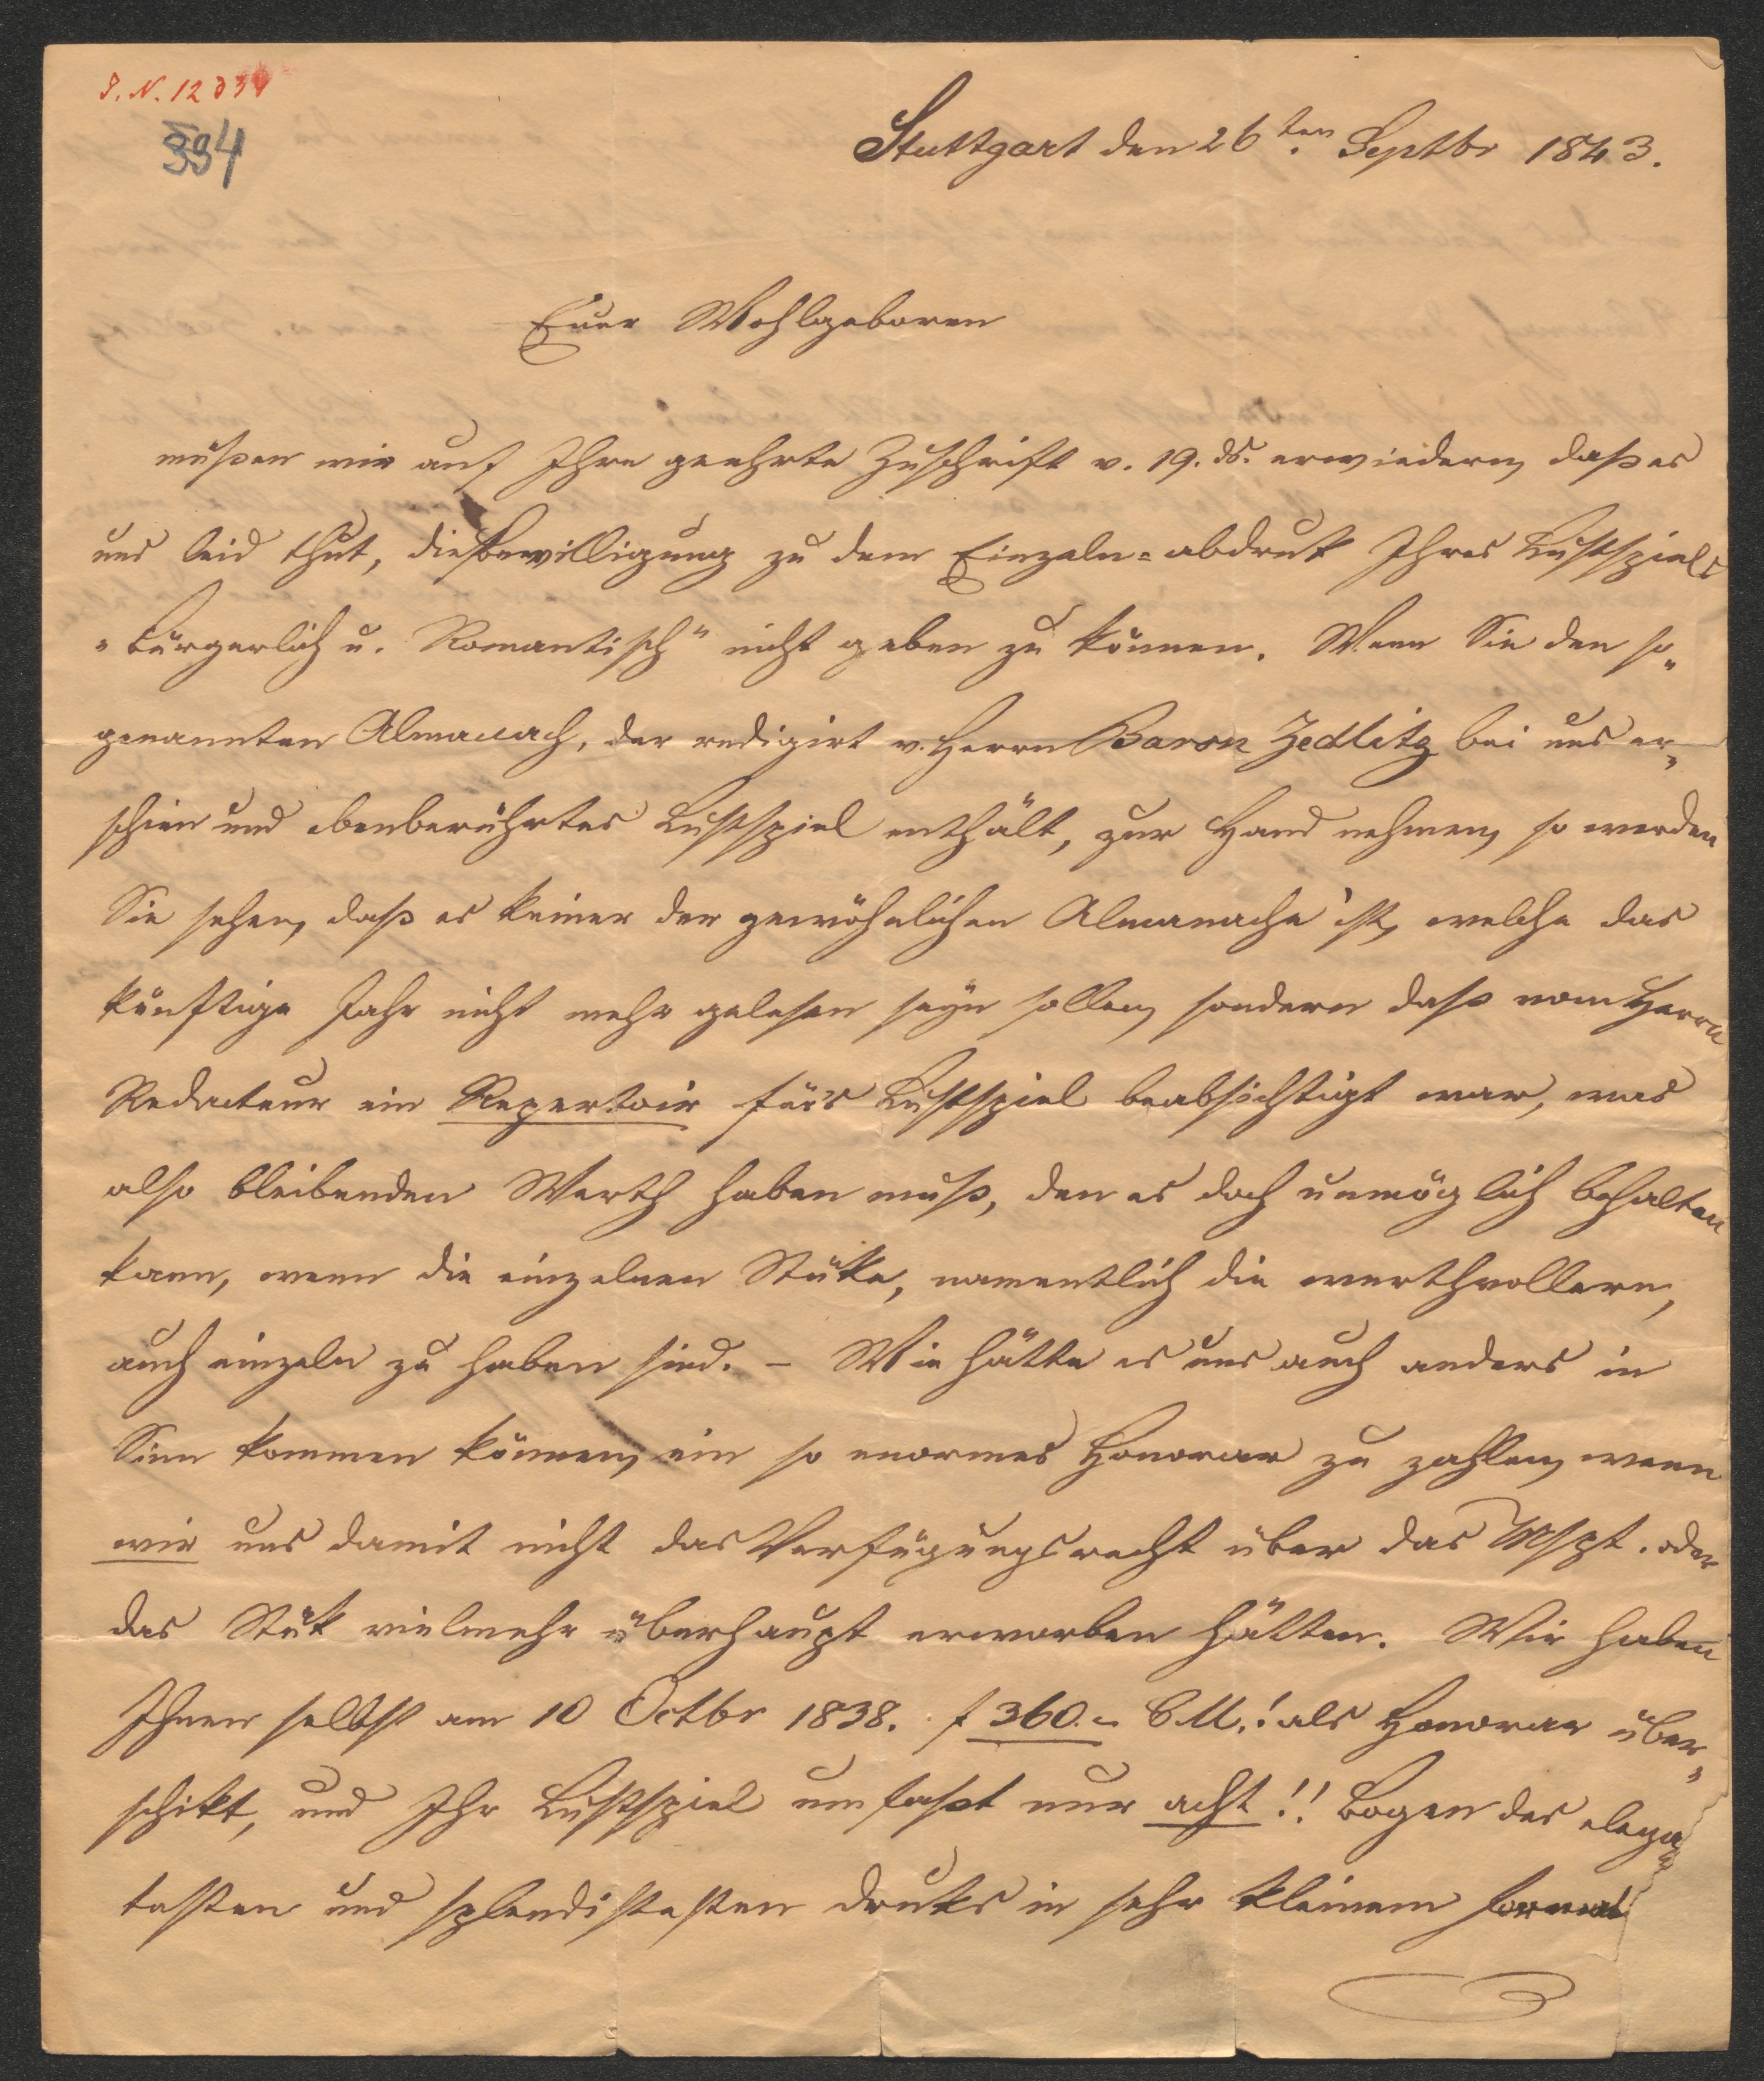 I. N. 12034
394
Stuttgart den 26ten Septbr 1843.
Euer Wohlgeboren
müßen wir auf Ihre geehrte Zuschrift v. 19. ds. erwiedern, daß es
uns leid thut, die Bewilligung zu dem Einzeln-abdruk Ihres Lustspiels
"Bürgerlich u. Romantisch" nicht geben zu können. Wenn Sie den so„
genannten Almanach, der redigirt v. Herrn Baron Zedlitz bei uns er„
schien und obenberührtes Lustspiel enthält, zur Hand nehmen, so werden
Sie sehen, daß es keiner der gewöhnlichen Almanache ist, welche das
künftige Jahr nicht mehr gelesen seyn sollen, sondern daß vom Herrn
Redacteur ein Repertoir für's Lustspiel beabsichtigt war, was
also bleibenden Werth haben muß, den es doch unmöglich behalten
kann, wenn die einzelnen Stüke, namentlich die werthvollern,
auch einzeln zu haben sind. – Wie hätte es uns auch anders in
Sinn kommen können, ein so enormes Honorar zu zahlen, wenn
wir uns damit nicht das Verfügungsrecht über das Mspt. oder
das Stük vielmehr überhaupt erworben hätten. Wir haben
Ihnen selbst am 10 Octbr 1838. f 360.– C.M.! als Honorar über„
schikt, und Ihr Lustspiel umfaßt nur acht!! Bogen des elegan„
testen und splendidesten Druks in sehr kleinem Format